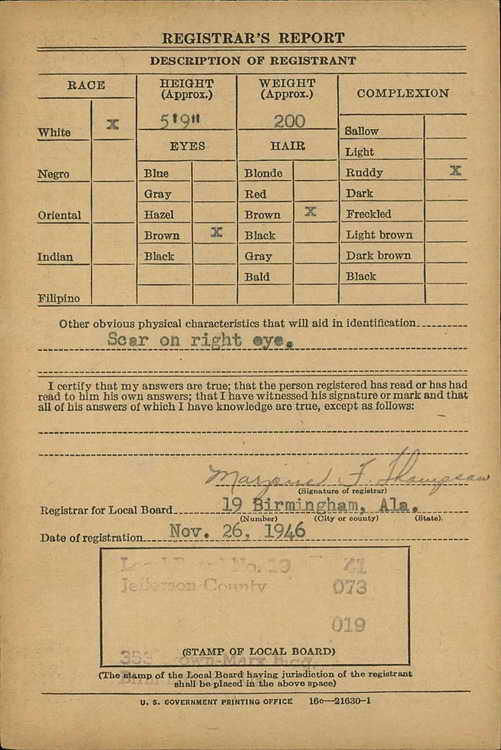 REGISTRAR'S REPORT
DESCRIPTION OF REGISTRANT
RACE HEIGHT (Approx.) WEIGHT (Approx.) COMPLEXION
White X 5'9" 200 Sallow
EYES HAIR Light
Negro Blue Blonde Ruddy X
Gray Red Dark
Oriental Hazel Brown X Freckled
Brown X Black Light brown
Indian Black Gray Dark brown
Bald Black
Filipino
Other obvious physical characteristics that will aid in identification
Scar on right eye.
I certify that my answers are true; that the person registered has read or has had
read to him his own answers; that I have witnessed his signature or mark and that
all of his answers of which I have knowledge are true, except as follows:
Marjorie F. Thompson
(Signature of registrar)
Registrar for Local Board 19 Birmingham, Ala.
(Number) (City or county) (State)
Date of registration Nov. 26, 1946
Local Board No. 19 41
Jefferson County 073
019
(STAMP OF LOCAL BOARD)
(The stamp of the Local Board having jurisdiction of the registrant
shall be placed in the above space)
U. S. GOVERNMENT PRINTING OFFICE 16c—21630-1